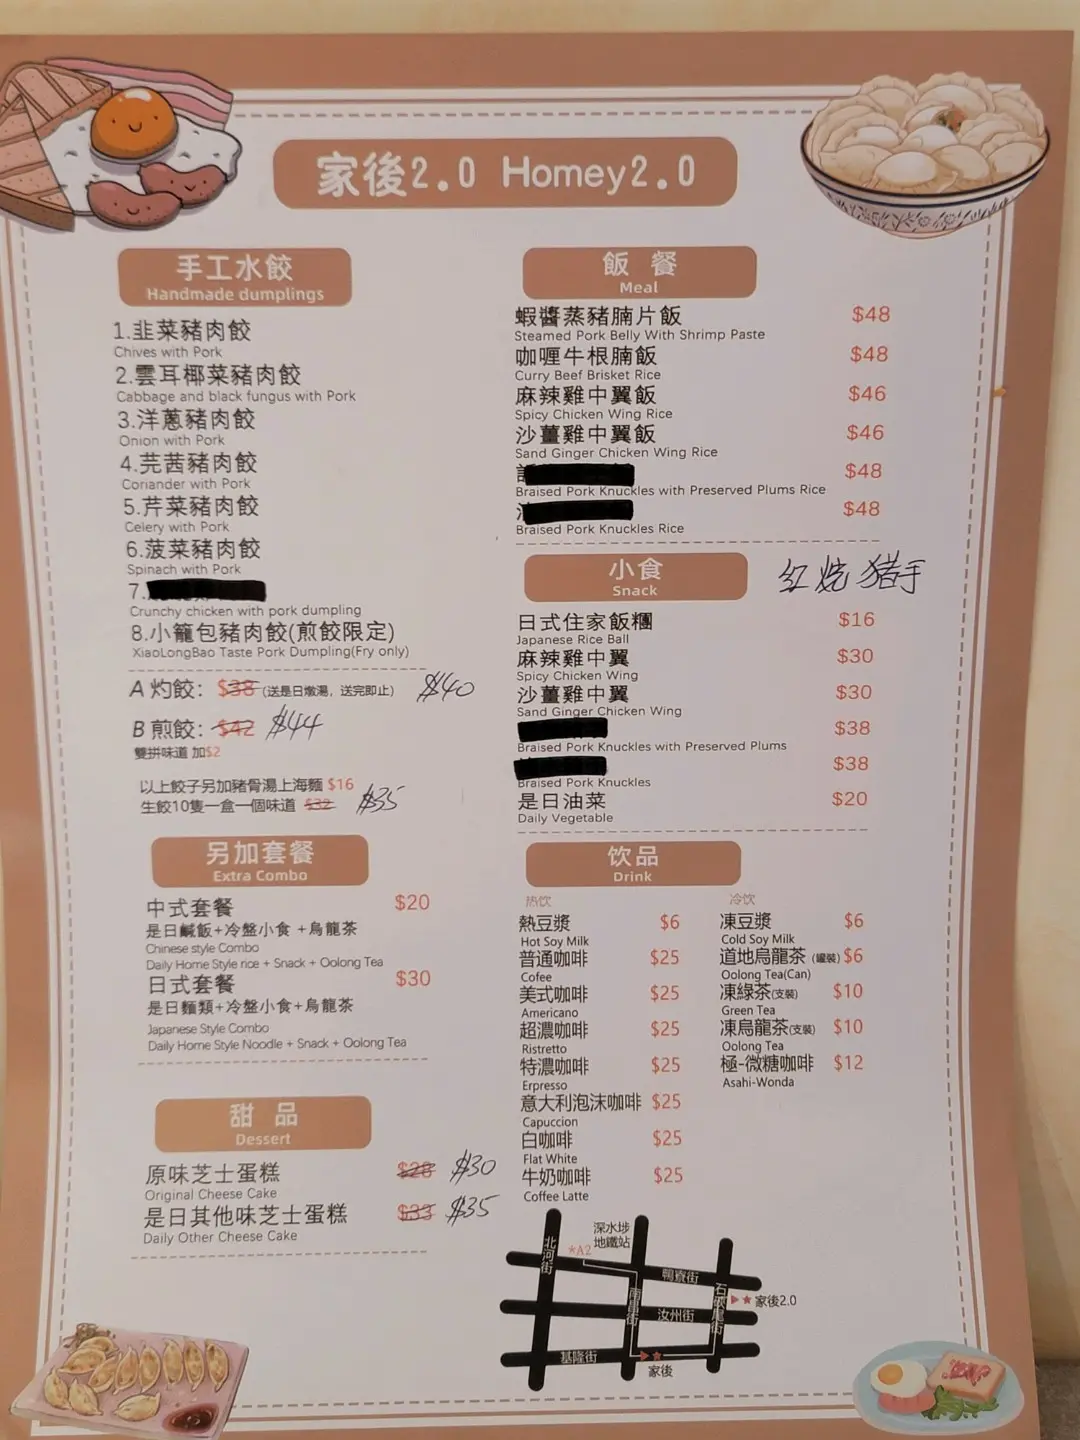 家後2.0 Homey2.0
手工水餃
Handmade dumplings
1.韭菜豬肉餃
Chives with Pork
2.雲耳椰菜豬肉餃
Cabbage and black fungus with Pork
3.洋蔥豬肉餃
Onion with Pork
4.芫茜豬肉餃
Coriander with Pork
5.芹菜豬肉餃
Celery with Pork
6.菠菜豬肉餃
Spinach with Pork
7.
Crunchy chicken with pork dumpling
8.小籠包豬肉餃(煎餃限定)
XiaoLongBao Taste Pork Dumpling(Fry only)
A 灼餃: $38 (送是日燉湯, 送完即止) $40
B 煎餃: $42 $44
雙拼味道 加$2
以上餃子另加豬骨湯上海麵 $16
生餃10隻一盒一個味道 $32 $35
另加套餐
Extra Combo
中式套餐 $20
是日鹹飯+冷盤小食 +烏龍茶
Chinese style Combo
Daily Home Style rice + Snack + Oolong Tea
日式套餐 $30
是日麵類+冷盤小食+烏龍茶
Japanese Style Combo
Daily Home Style Noodle + Snack + Oolong Tea
甜 品
Dessert
原味芝士蛋糕 $28 $30
Original Cheese Cake
是日其他味芝士蛋糕 $33 $35
Daily Other Cheese Cake
飯 餐
Meal
蝦醬蒸豬腩片飯 $48
Steamed Pork Belly With Shrimp Paste
咖喱牛根腩飯 $48
Curry Beef Brisket Rice
麻辣雞中翼飯 $46
Spicy Chicken Wing Rice
沙薑雞中翼飯 $46
Sand Ginger Chicken Wing Rice
$48
Braised Pork Knuckles with Preserved Plums Rice
$48
Braised Pork Knuckles Rice
小食
Snack
红烧猪手
日式住家飯糰 $16
Japanese Rice Ball
麻辣雞中翼 $30
Spicy Chicken Wing
沙薑雞中翼 $30
Sand Ginger Chicken Wing
$38
Braised Pork Knuckles with Preserved Plums
$38
Braised Pork Knuckles
是日油菜 $20
Daily Vegetable
饮品
Drink
热饮
熱豆漿 $6
Hot Soy Milk
普通咖啡 $25
Cofee
美式咖啡 $25
Americano
超濃咖啡 $25
Ristretto
特濃咖啡 $25
Erpresso
意大利泡沫咖啡 $25
Capuccion
白咖啡 $25
Flat White
牛奶咖啡 $25
Coffee Latte
冷饮
凍豆漿 $6
Cold Soy Milk
道地烏龍茶 (罐裝) $6
Oolong Tea(Can)
凍綠茶(支裝) $10
Green Tea
凍烏龍茶(支裝) $10
Oolong Tea
極-微糖咖啡 $12
Asahi-Wonda
深水埗
地鐵站
*A2
北河街
鴨寮街
南昌街
石硤尾街
家後2.0
汝州街
基隆街
家後